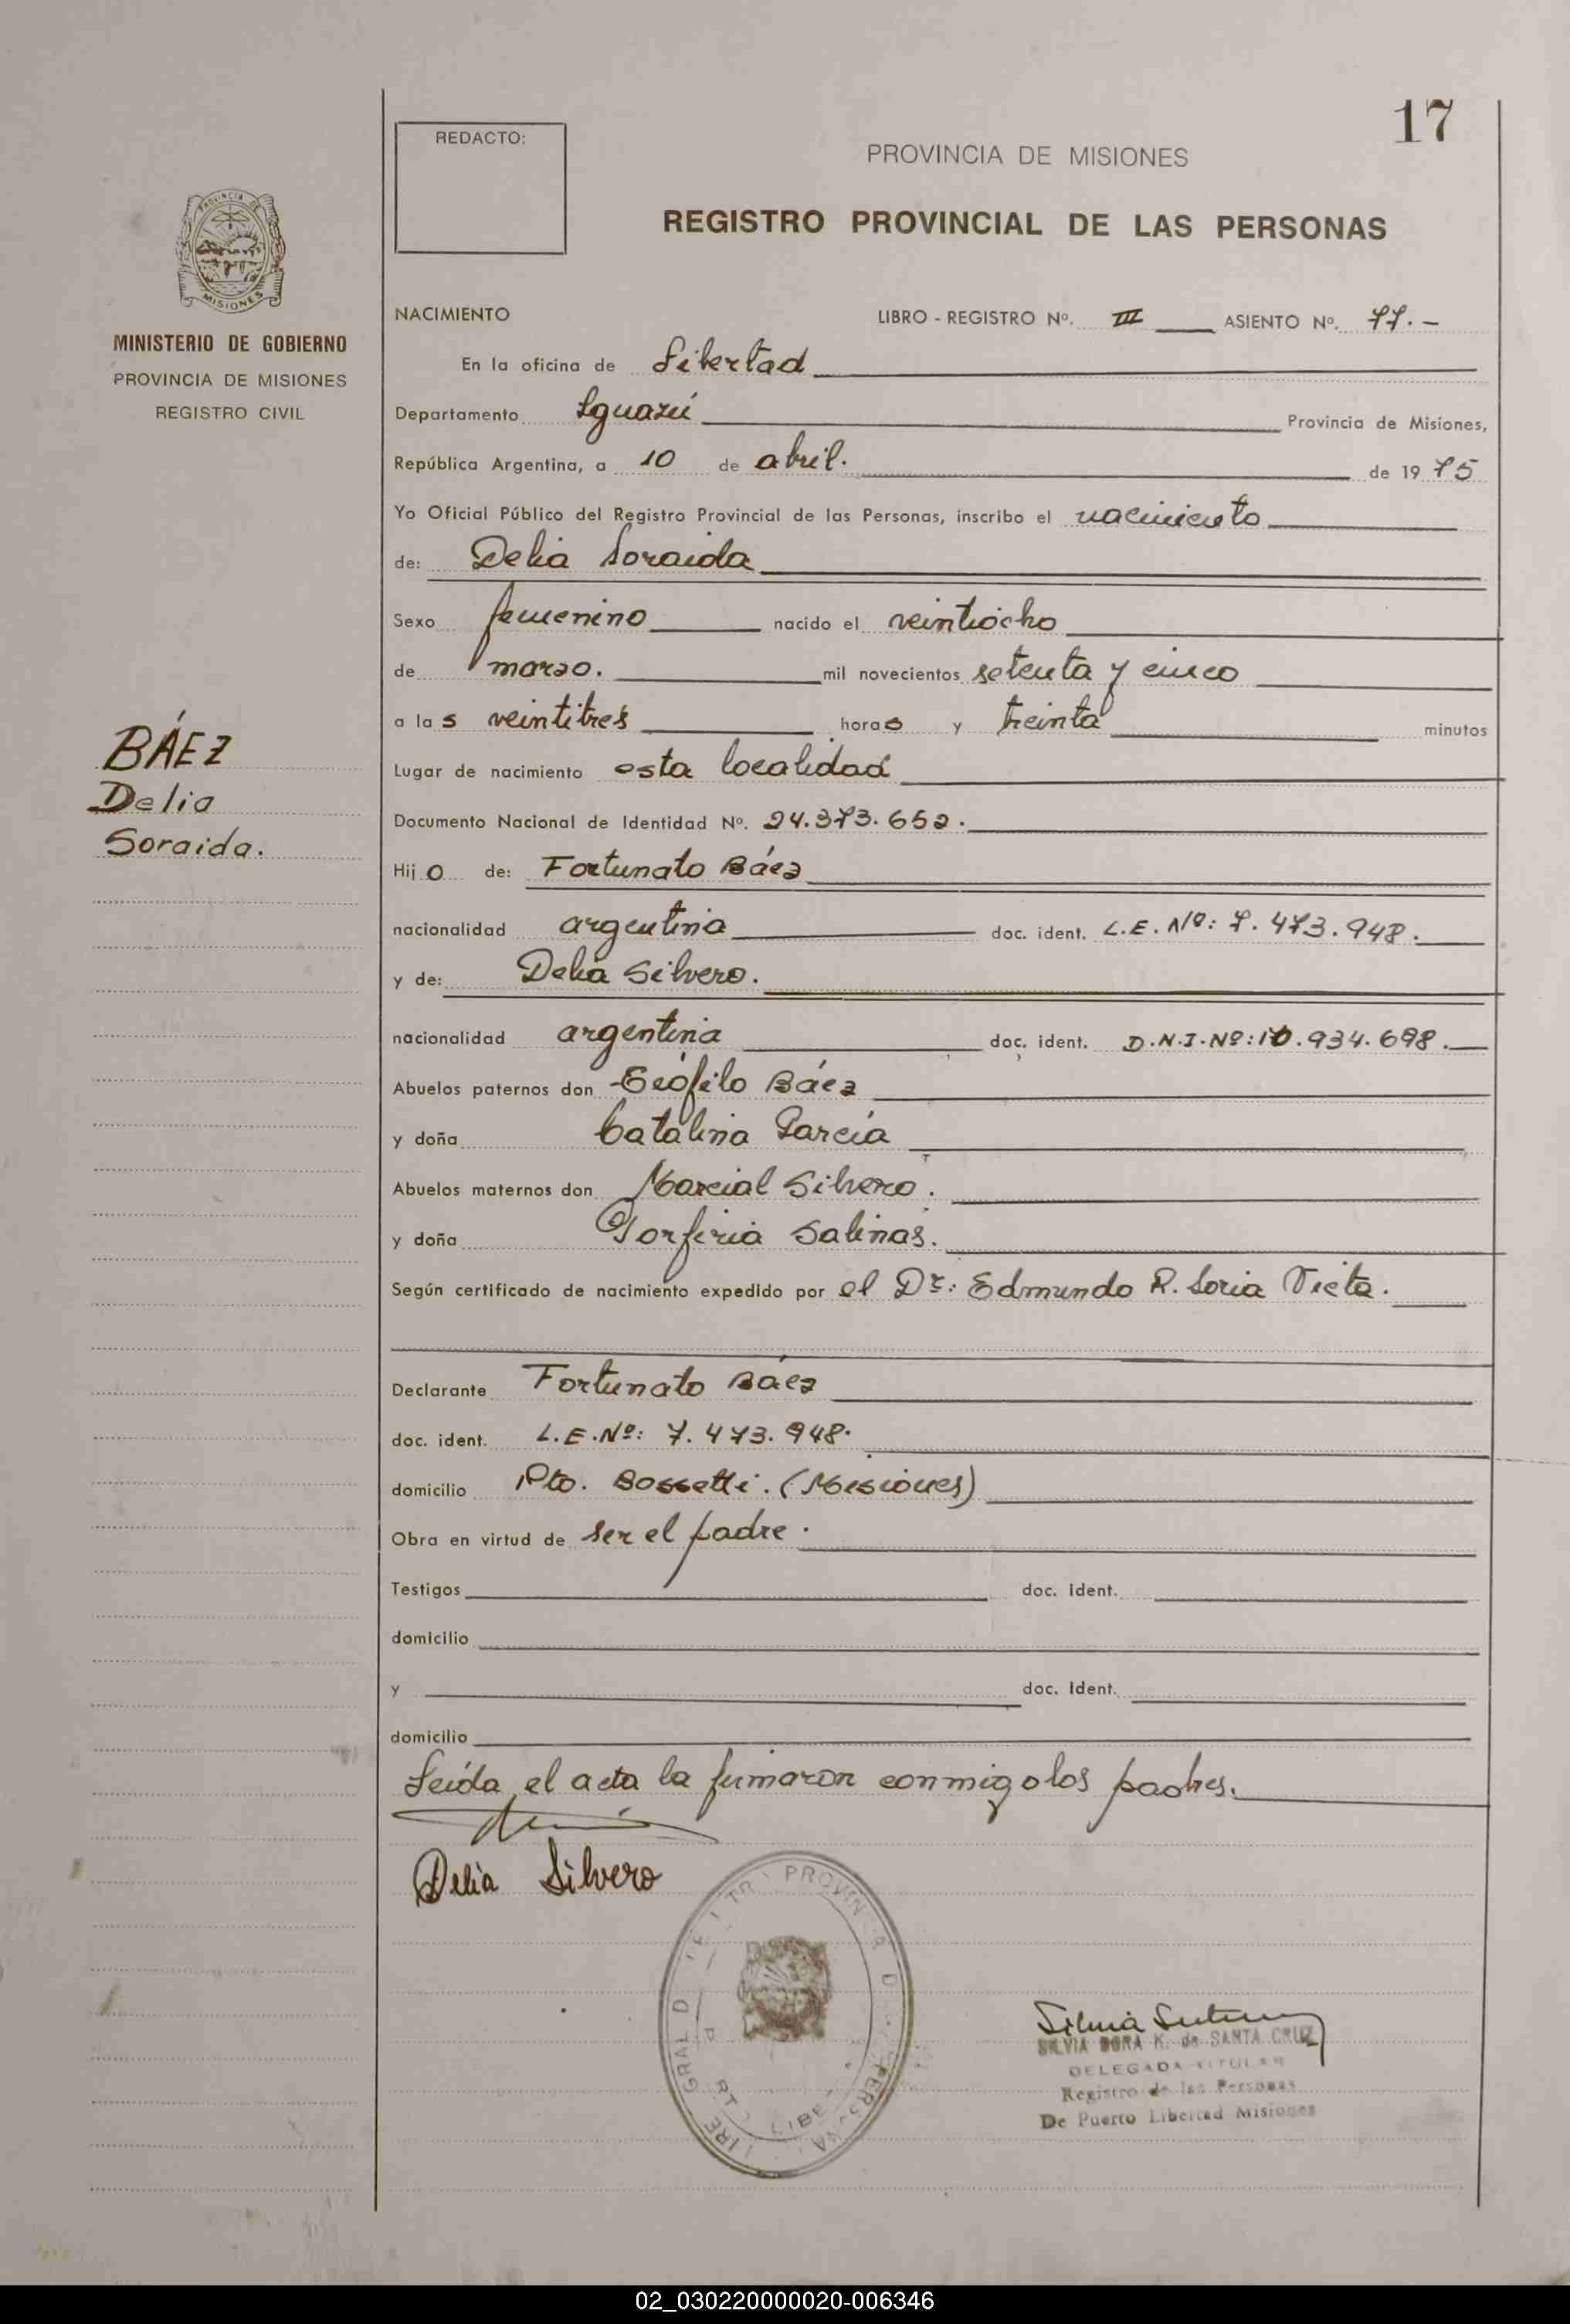 17
REDACTO:
PROVINCIA DE MISIONES
REGISTRO PROVINCIAL DE LAS PERSONAS
PROVINCIA DE
MISIONES
MINISTERIO DE GOBIERNO
PROVINCIA DE MISIONES
REGISTRO CIVIL
BÁEZ
Delia
Soraida.
NACIMIENTO LIBRO - REGISTRO Nº. III ASIENTO Nº. 77.-
En la oficina de Libertad
Departamento Iguazú Provincia de Misiones,
República Argentina, a 10 de abril. de 1975
Yo Oficial Público del Registro Provincial de las Personas, inscribo el nacimiento
de: Delia Soraida
Sexo femenino nacido el veintiocho
de marzo. mil novecientos setenta y cinco
a las veintitrés horas y treinta minutos
Lugar de nacimiento esta localidad
Documento Nacional de Identidad Nº. 24.373.652.
Hijo de: Fortunato Báez
nacionalidad argentina doc. ident. L.E. Nº: 7.473.948.
y de: Delia Silvero.
nacionalidad argentina doc. ident. D.N.I. Nº: 10.934.698.
Abuelos paternos don Teófilo Báez
y doña Catalina García
Abuelos maternos don Marcial Silvero.
y doña Porfiria Salinas.
Según certificado de nacimiento expedido por el Dr: Edmundo R. Soria Vieta.
Declarante Fortunato Báez
doc. ident. L.E. Nº: 7.473.948.
domicilio Pto. Bossetti. (Misiones)
Obra en virtud de ser el padre.
Testigos doc. ident.
domicilio
y doc. ident.
domicilio
Leída el acta la firmaron conmigo los padres.
Delia Silvero
SILVIA DORA K. de SANTA CRUZ
DELEGADA TITULAR
Registro de las Personas
De Puerto Libertad Misiones
02_030220000020-006346